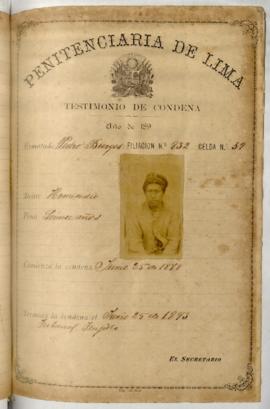 PENITENCIARIA DE LIMA
TESTIMONIO DE CONDENA
Año de 189
Rematado Pedro Burgos FILIACION N.º 832 CELDA N.º 59
Delito Homicidio
Pena años
Comienza la condena Junio 25 de 1880
Termina la condena el Junio 25 de 1895
Tribunal
EL SECRETARIO